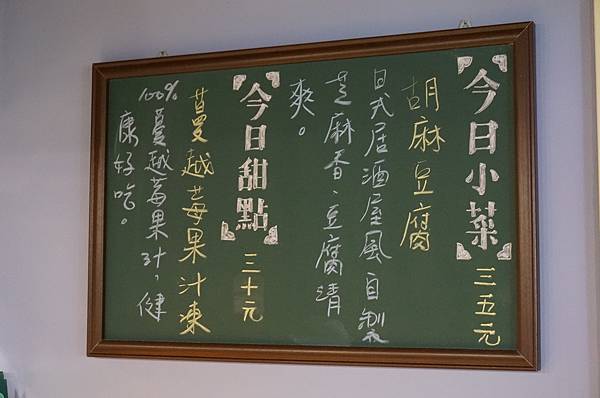 今日小菜 三五元
胡麻豆腐
日式居酒屋風自製
芝麻香、豆腐清
爽。
今日甜點 三十元
蔓越莓果汁凍
100%蔓越莓果汁，健
康好吃。